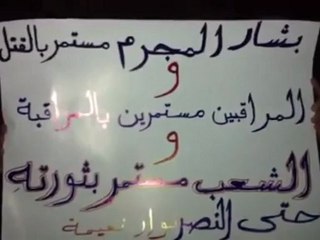 بشار المجرم مستمر بالقتل
و
المراقبين مستمرين بالمراقبة
و
الشعب مستمر بثورته
حتى النصر ثوار نعيمة